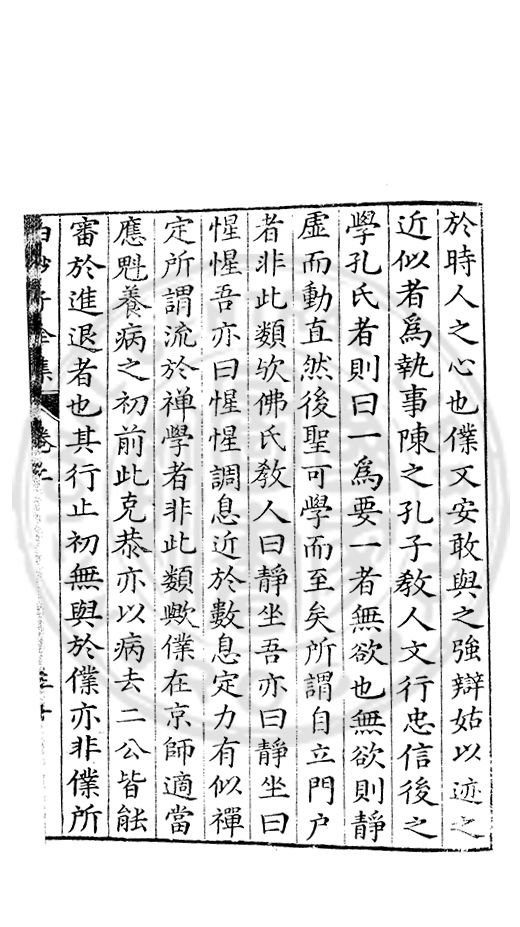 於時人之心也僕又安敢與之強辯姑以迹之
近似者爲執事陳之孔子教人文行忠信後之
學孔氏者則曰一爲要一者無欲也無欲則靜
虛而動直然後聖可學而至矣所謂自立門户
者非此類欤佛氏教人曰靜坐吾亦曰靜坐曰
惺惺吾亦曰惺惺調息近於數息定力有似禪
定所謂流於禅學者非此類歟僕在京師適當
應魁養病之初前此克恭亦以病去二公皆能
審於進退者也其行止初無與於僕亦非僕所
白沙子全集 卷二